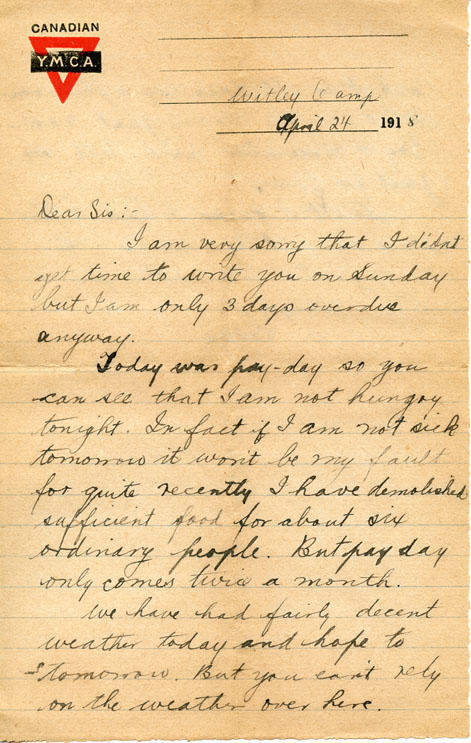 CANADIAN
Y.M.C.A.
Witley Camp
April 24 1918
Dear Sis:-
I am very sorry that I didnt
get time to write you on Sunday
but I am only 3 days overdue
anyway.
Today was pay-day so you
can see that I am not hungry
tonight. In fact if I am not sick
tomorrow it wont be my fault
for quite recently I have demolished
sufficient food for about six
ordinary people. But pay day
only comes twice a month.
We have had fairly decent
weather today and hope to
tomorrow. But you cant rely
on the weather over here.